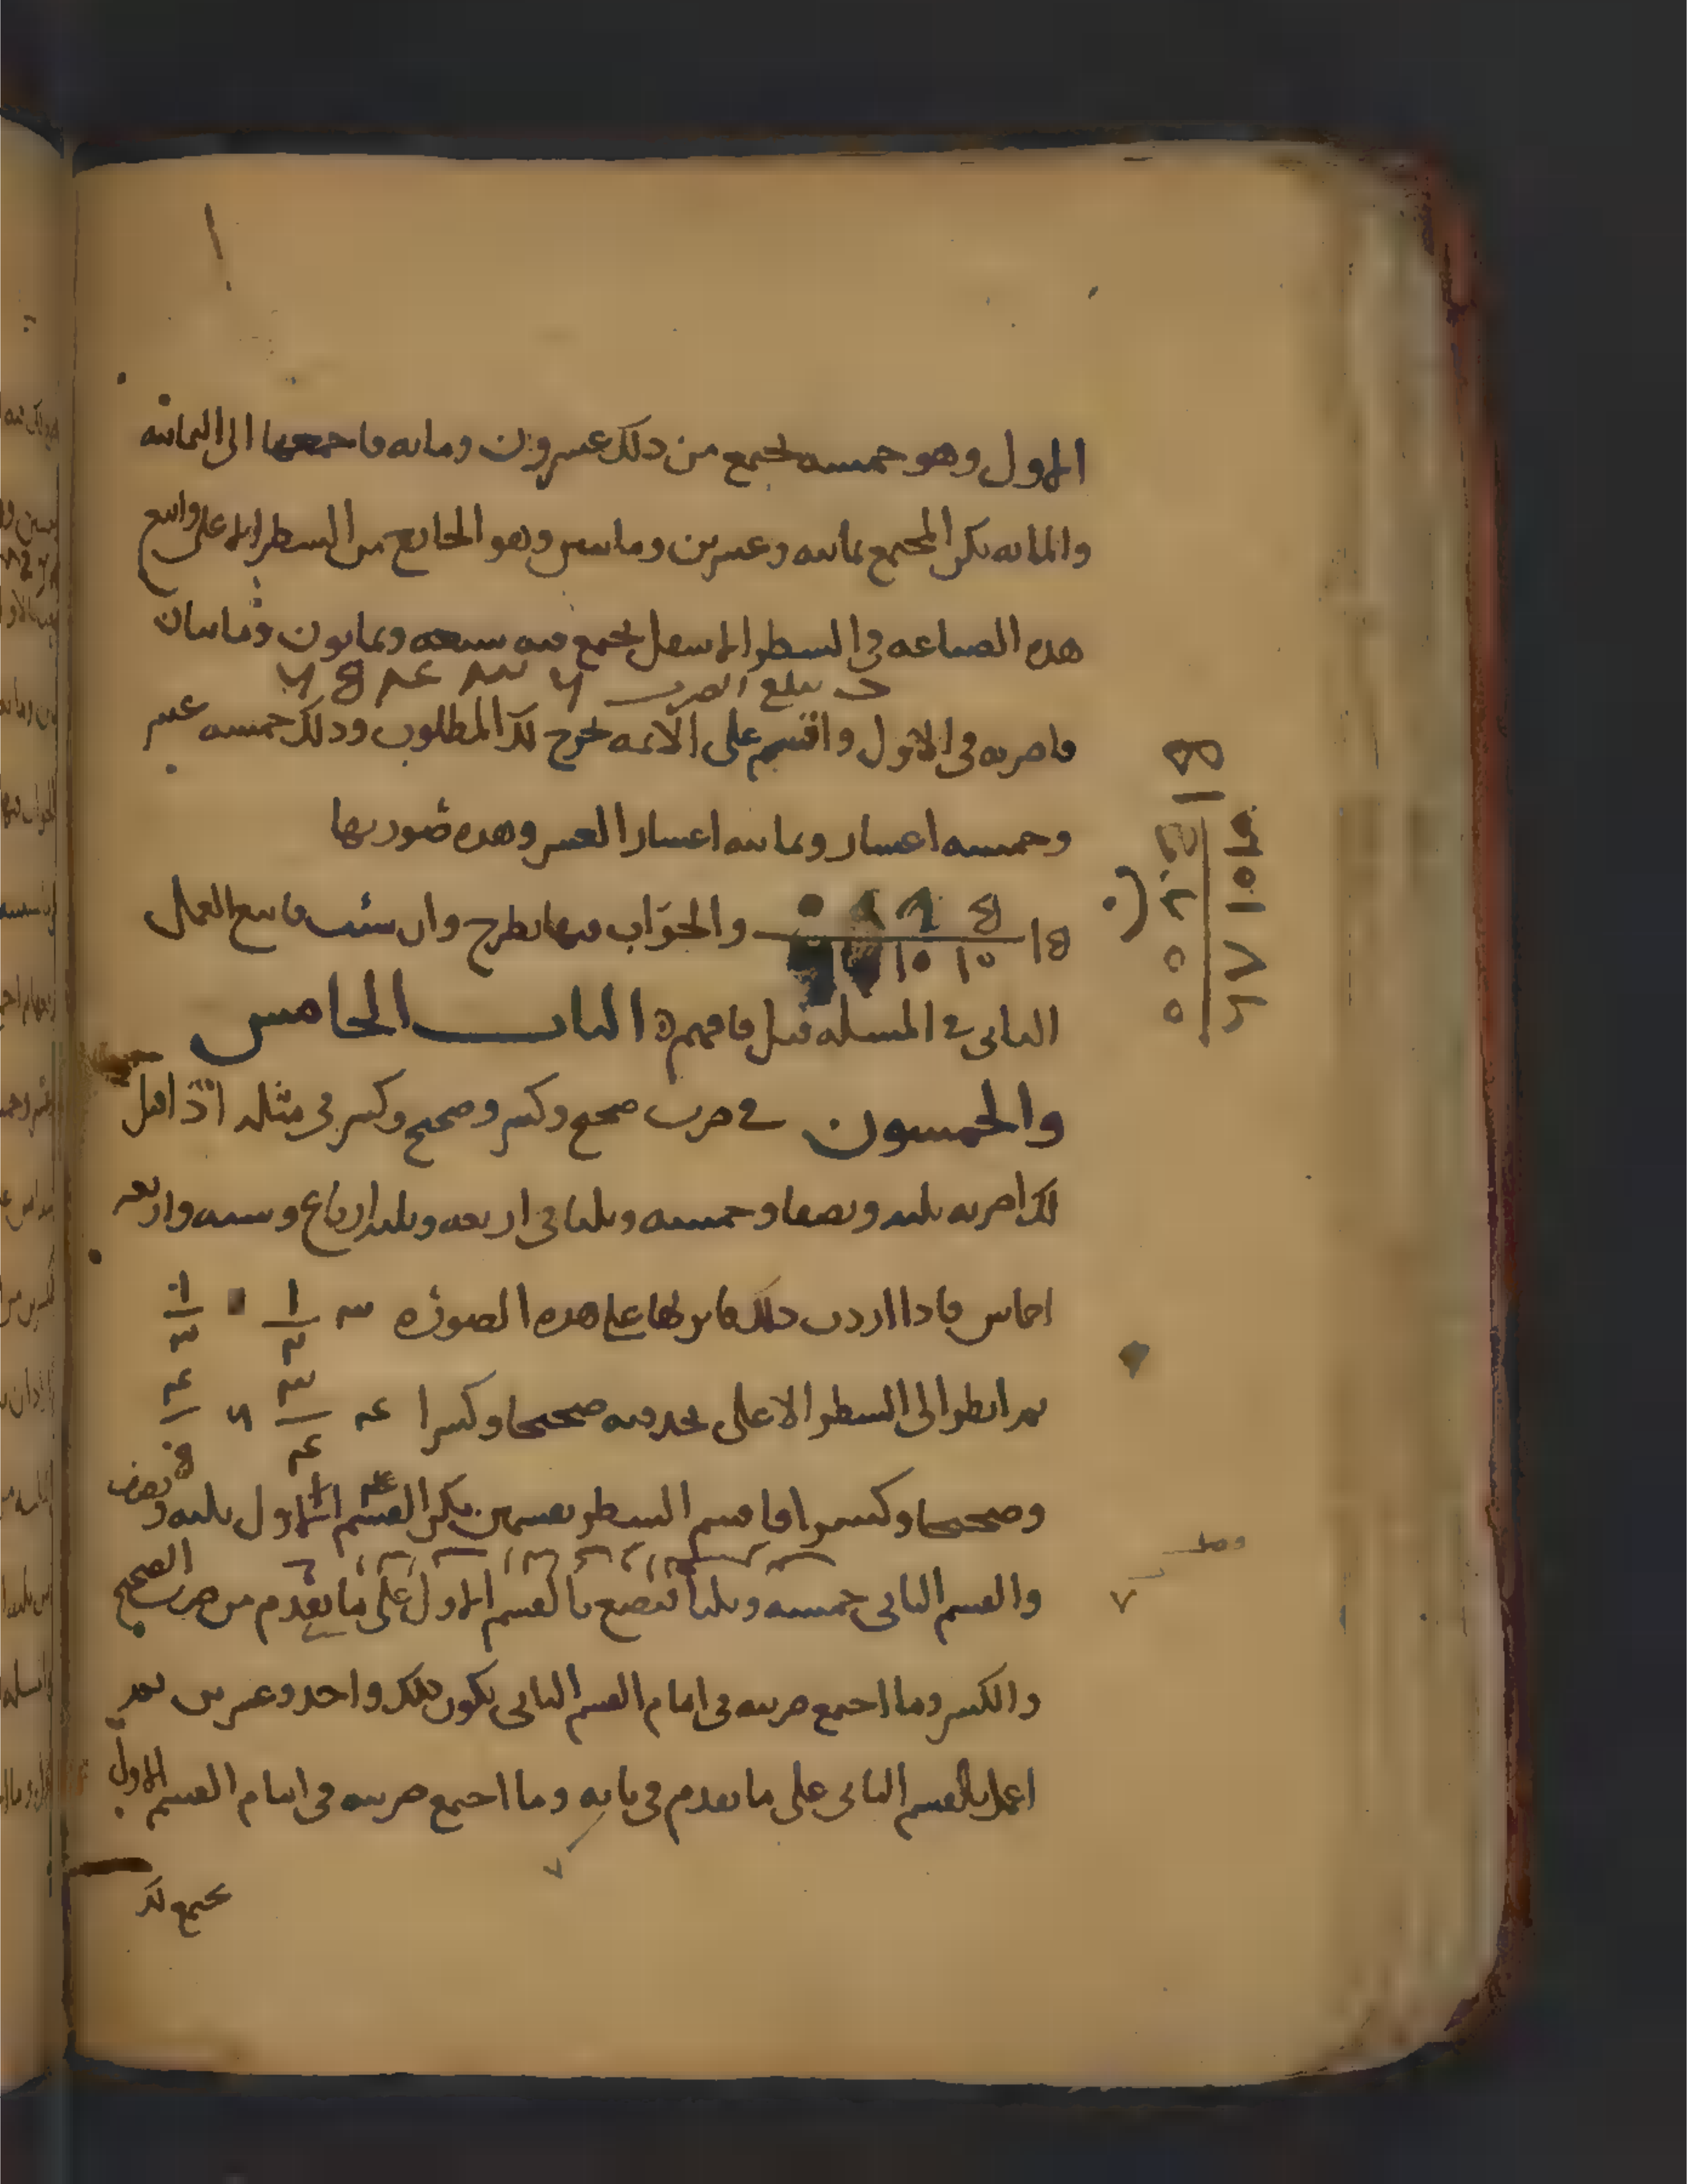 الاول وهو خمسه يجتمع من ذلك عشرون ومايه فاجمعها الى الثمانيه
والمايه يكن المجتمع ثمانيه وعشرين ومايتين وهو الخارج من السطر الاعلى واتبع
هذه الصناعه فى السطر الاسفل يجتمع منه سبعه وثمانون ومايتان
فاضربه فى الاول واقسم على الايمه يخرج لك المطلوب وذلك خمسه عشر
وخمسه اعشار وثمانيه اعشار العشر وهذه صورتها
والجواب فيها يطرح وان شئت فاتبع العمل
الثانى فى المسله قبل فافهم الباب الخامس
والخمسون فى ضرب صحيح وكسر وصحيح وكسر فى مثله اذا قيل
لك اضرب ثلثه ونصفا وخمسه وثلثا فى اربعه وثلثه ارباع وسته واربعه
اخماس فاذا اردت ذلك فانزلها على هذه الصوره
ثم انظر الى السطر الاعلى تجد فيه صحيحا وكسرا
وصحيحا وكسرا فاقسم السطر بقسمين يكن القسم الاول ثلثه ونصف
والقسم الثانى خمسه وثلثا فتصنع بالقسم الاول على ما تقدم من ضرب الصحيح
والكسر وما اجتمع ضربته فى امام القسم الثانى يكون ذلك واحد وعشرين ثم
اعمل بالقسم الثانى على ما تقدم فى بابه وما اجتمع ضربته فى امام القسم الاول
يجتمع لك